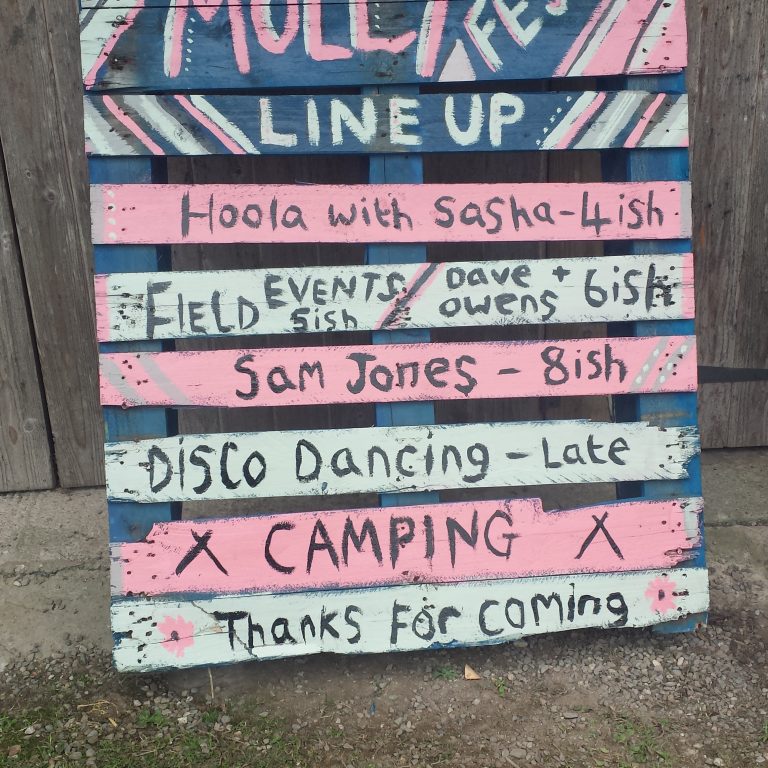 MOLLY FEST
LINE UP
Hoola with Sasha - 4ish
FIELD EVENTS 5ish / Dave + owens 6ish
Sam Jones - 8ish
DISCO Dancing - Late
CAMPING
Thanks For coming